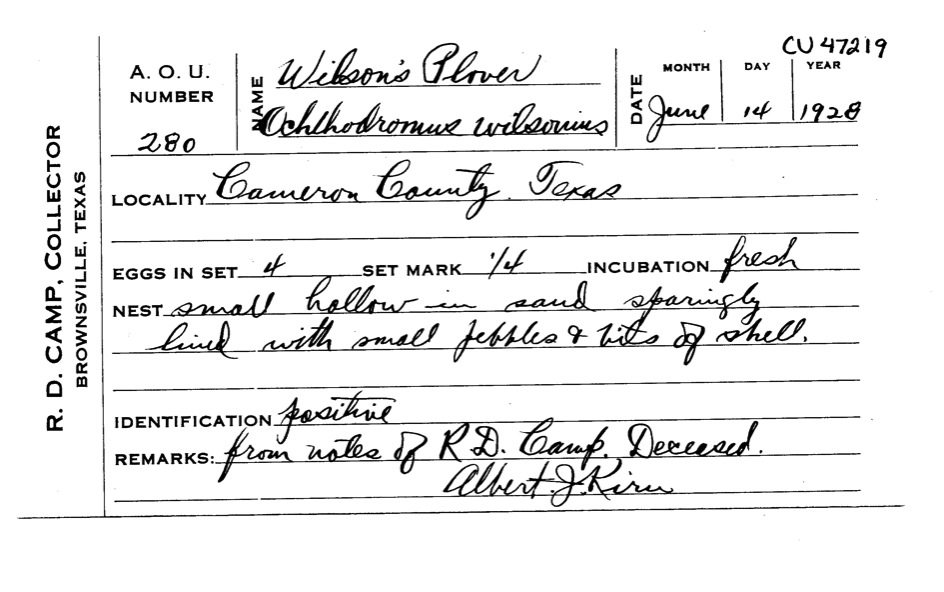 CU 47219
R. D. CAMP, COLLECTOR
BROWNSVILLE, TEXAS
A. O. U.
NUMBER
280
NAME Wilson's Plover
Ochthodromus wilsonius
DATE
MONTH DAY YEAR
June 14 1928
LOCALITY Cameron County. Texas
EGGS IN SET 4 SET MARK 1/4 INCUBATION fresh
NEST small hollow in sand sparingly
lined with small pebbles & bits of shell.
IDENTIFICATION positive
REMARKS: from notes of R.D. Camp. Deceased.
Albert J. Kirn